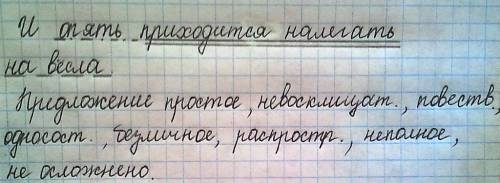 И опять приходится налегать
на весла.
Предложение простое, невосклицат., повеств.,
односост., безличное, распростр., неполное,
не осложнено.